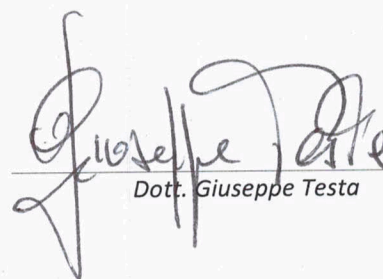 Giuseppe Testa
Dott. Giuseppe Testa